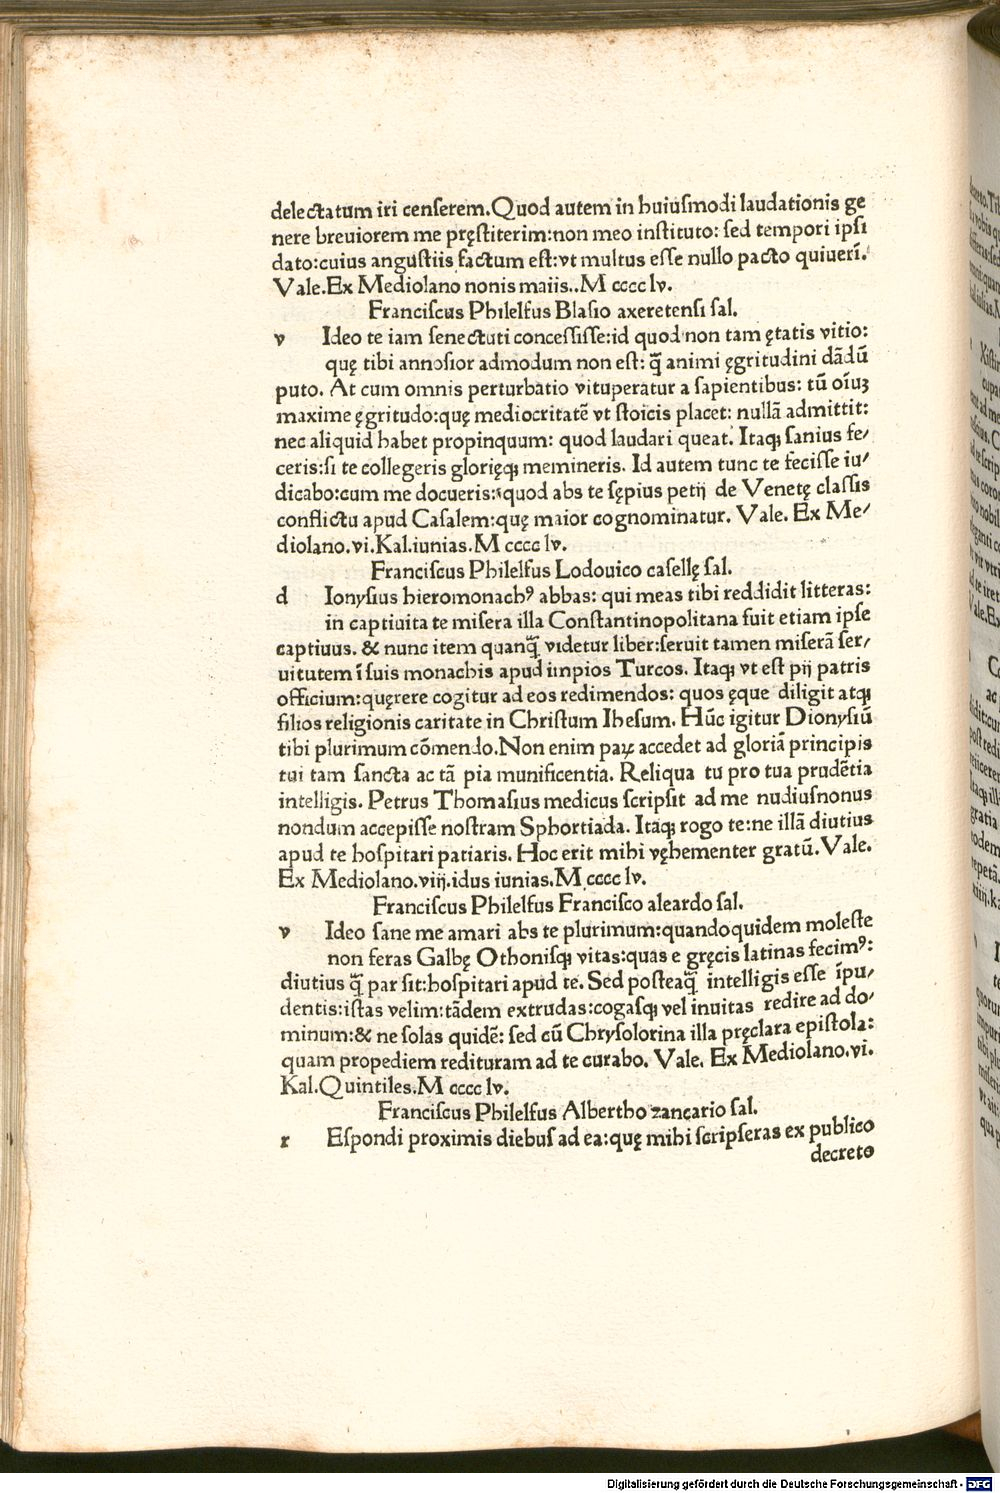 delectatum iri censerem.Quod autem in huiusmodi laudationis ge
nere breuiorem me pręstiterim:non meo instituto: sed tempori ipsi
dato:cuius angustiis factum est:vt multus esse nullo pacto quiuerĩ.
Vale.Ex Mediolano nonis maiis..M cccc lv.
Franciscus Philelfus Blasio axeretensi sal.
v Ideo te iam senectuti concessisse:id quod non tam ętatis vitio:
quę tibi annosior admodum non est: q̃ animi ęgritudini dãdũ
puto. At cum omnis perturbatio vituperatur a sapientibus: tũ oĩuꝫ
maxime ęgritudo:quę mediocritatẽ vt stoicis placet: nullã admittit:
nec aliquid habet propinquum: quod laudari queat. Itaqꝫ sanius fe/
ceris:si te collegeris glorięqꝫ memineris. Id autem tunc te fecisse iu/
dicabo:cum me docueris:quod abs te sępius petij de Venetę classis
conflictu apud Casalem:quę maior cognominatur. Vale. Ex Me/
diolano.vi.Kal.iunias.M cccc lv.
Franciscus Philelfus Lodouico casellę sal.
d Ionysius hieromonachꝰ abbas: qui meas tibi reddidit litteras:
in captiuitate misera illa Constantinopolitana fuit etiam ipse
captiuus. & nunc item quanq̃ videtur liber:seruit tamen miserã ser/
uitutem ĩ suis monachis apud impios Turcos. Itaqꝫ vt est pij patris
officium:quęrere cogitur ad eos redimendos: quos ęque diligit atqꝫ
filios religionis caritate in Christum Ihesum. Hũc igitur Dionysiũ
tibi plurimum cõmendo.Non enim paꝝ accedet ad gloriã principis
tui tam sancta ac tã pia munificentia. Reliqua tu pro tua prudẽtia
intelligis. Petrus Thomasius medicus scripsit ad me nudiusnonus
nondum accepisse nostram Sphortiada. Itaqꝫ rogo te:ne illã diutius
apud te hospitari patiaris. Hoc erit mihi vęhementer gratũ. Vale.
Ex Mediolano.viij.idus iunias.M cccc lv.
Franciscus Philelfus Francisco aleardo sal.
v Ideo sane me amari abs te plurimum:quandoquidem moleste
non feras Galbę Othonisqꝫ vitas:quas e gręcis latinas fecimꝰ:
diutius q̃ par sit:hospitari apud te. Sed posteaq̃ intelligis esse ĩpu/
dentis:istas velim:tãdem extrudas:cogasqꝫ vel inuitas redire ad do/
minum:& ne solas quidẽ: sed cũ Chrysolorina illa pręclara epistola:
quam propediem redituram ad te curabo. Vale. Ex Mediolano.vi.
Kal.Quintiles.M cccc lv.
Franciscus Philelfus Albertho zancario sal.
r Espondi proximis diebus ad ea:quę mihi scripseras ex publico
decreto
Digitalisierung gefördert durch die Deutsche Forschungsgemeinschaft - DFG